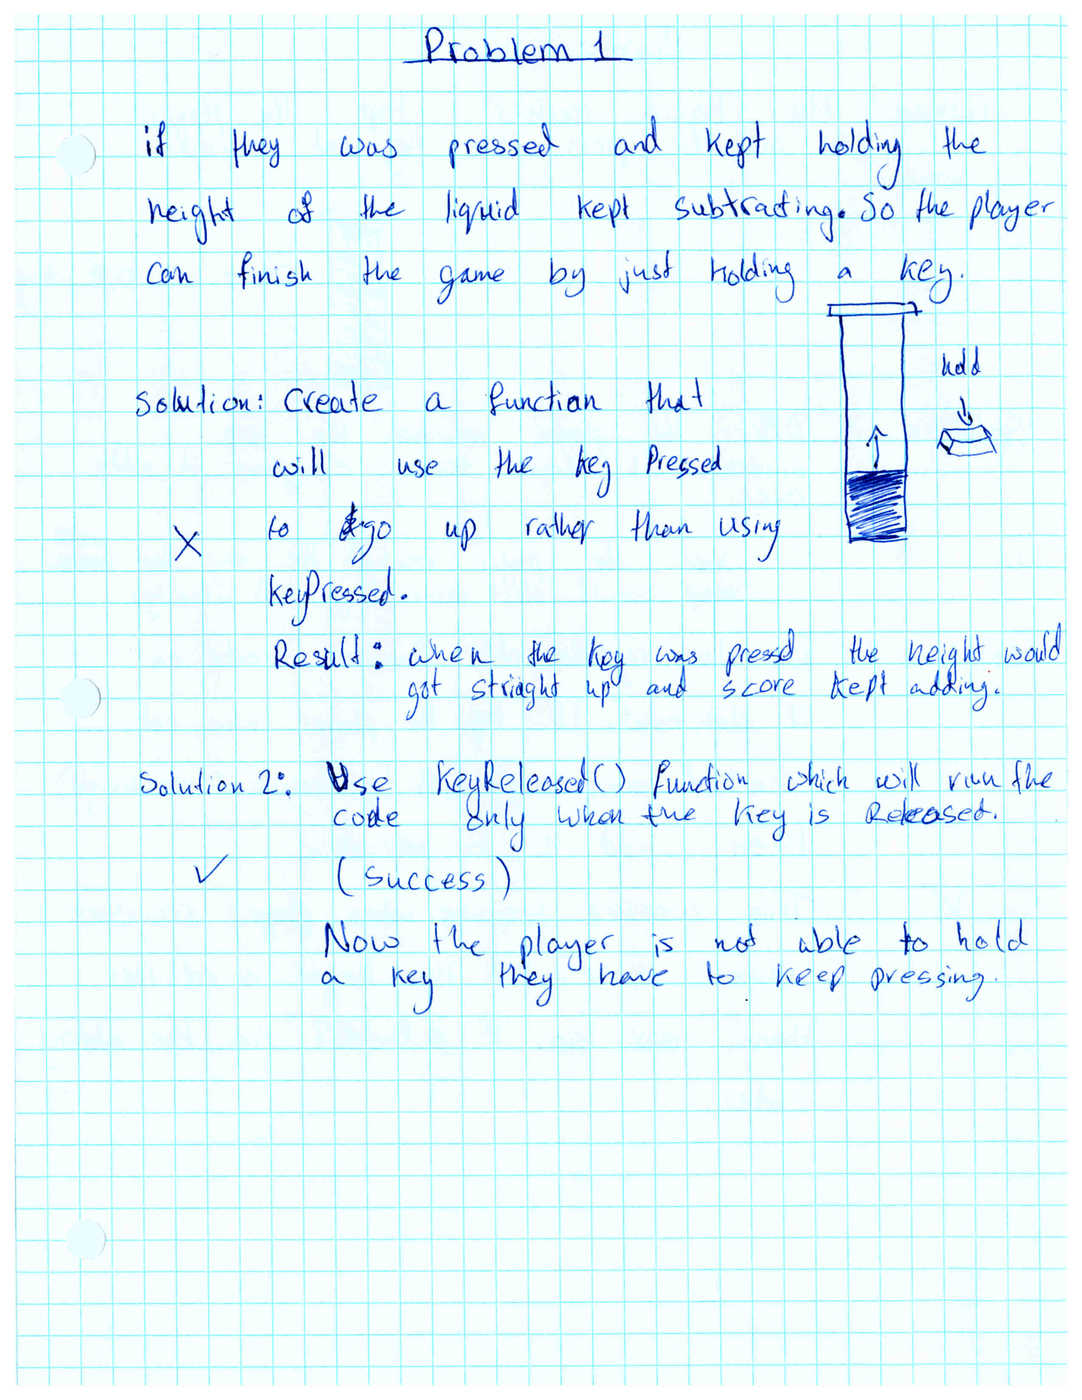 Problem 1
if they was pressed and kept holding the
height of the liquid kept subtracting. So the player
can finish the game by just holding a key.
hold
Solution: Create a function that
will use the key Pressed
to go up rather than using
keyPressed.
Result: when the key was pressd the height would
got striaght up and score kept adding.
Solution 2: Use KeyReleased() function which will run the
code only when the key is Released.
(success)
Now the player is not able to hold
a key they have to keep pressing.